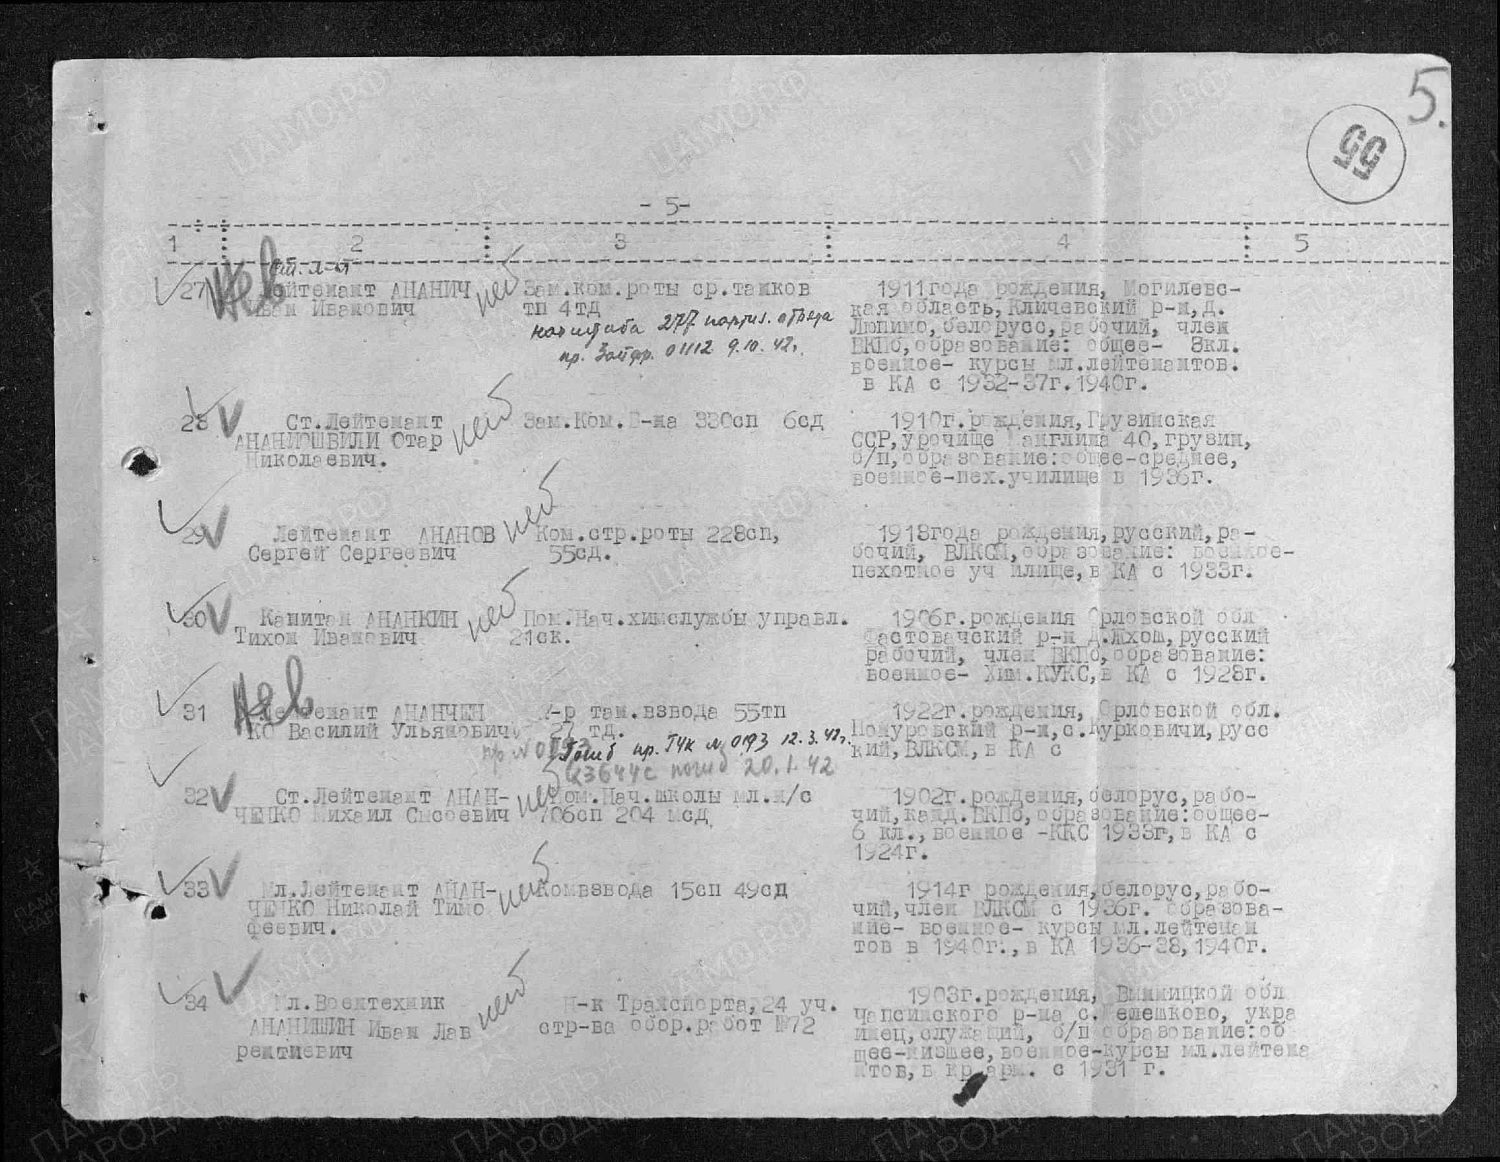 5.
55
- 5-
1 2 3 4 5
27 Лейтенант АНАНИЧ
Иван Иванович
Зам.ком.роты ср.танков
тп 4тд
нач штаба 277 партиз. отряда
пр. 01112 9.10.42г.
1911года рождения, Могилевс-
кая область, Кличевский р-н, д.
Любино, белорусс, рабочий, член
ВКПб, образование: общее- 8кл.
военное- курсы мл.лейтенантов.
в КА с 1932-37г.1940г.
28 Ст.Лейтенант
АНАНИОШВИЛИ Отар
Николаевич.
Зам.Ком.Б-на 330сп 6сд
1910г.рождения, Грузинская
ССР, урочище Манглина 40, грузин,
б/п, образование: общее-среднее,
военное-пех.училище в 1936г.
29 Лейтенант АНАНОВ
Сергей Сергеевич
Ком.стр.роты 228сп,
55сд.
1918года рождения, русский, ра-
бочий, ВЛКСМ, образование: военное-
пехотное уч илище, в КА с 1933г.
30 Капитан АНАНКИН
Тихон Иванович
Пом.Нач.химслужбы управл.
21ск.
1906г.рождения Орловской обл
р-н русский
рабочий, член ВКПб, образование:
военное- Хим.КУКС, в КА с 1928г.
31 Лейтенант АНАНЧЕН
КО Василий Ульянович
К-р тан.взвода 55тп
27 тд.
Погиб пр. ГУК № 0193 12.3.42г.
пр № 0193
23644с погиб 20.1.42
1922г.рождения, Орловской обл.
р-н, с.Куркoвичи, русс
кий, ВЛКСМ, в КА с
32 Ст.Лейтенант АНАН-
ЧЕНКО Михаил Сысоевич
Пом.Нач.школы мл.н/с
706сп 204 мсд
1902г.рождения, белорус, рабо-
чий, канд.ВКПб, образование: общее-
6 кл., военное -ККС 1933г, в КА с
1924г.
33 Мл.Лейтенант АНАН-
ЧЕНКО Николай Тимо
феевич.
Комвзвода 15сп 49сд
1914г рождения, белорус, рабо-
чий, член ВЛКСМ с 1936г. образова-
ние- военное- курсы мл.лейтенан
тов в 1940г., в КА 1936-38, 1940г.
34 Мл.Воентехник
АНАНИШИН Иван Лав
рентиевич
Н-к Транспорта, 24 уч.
стр-ва обор.работ №72
1903г.рождения, Винницкой обл
р-на с. укра
инец, служащий, б/п образование: об
щее-низшее, военное-курсы мл.лейтена
нтов, в кр арм. с 1931 г.